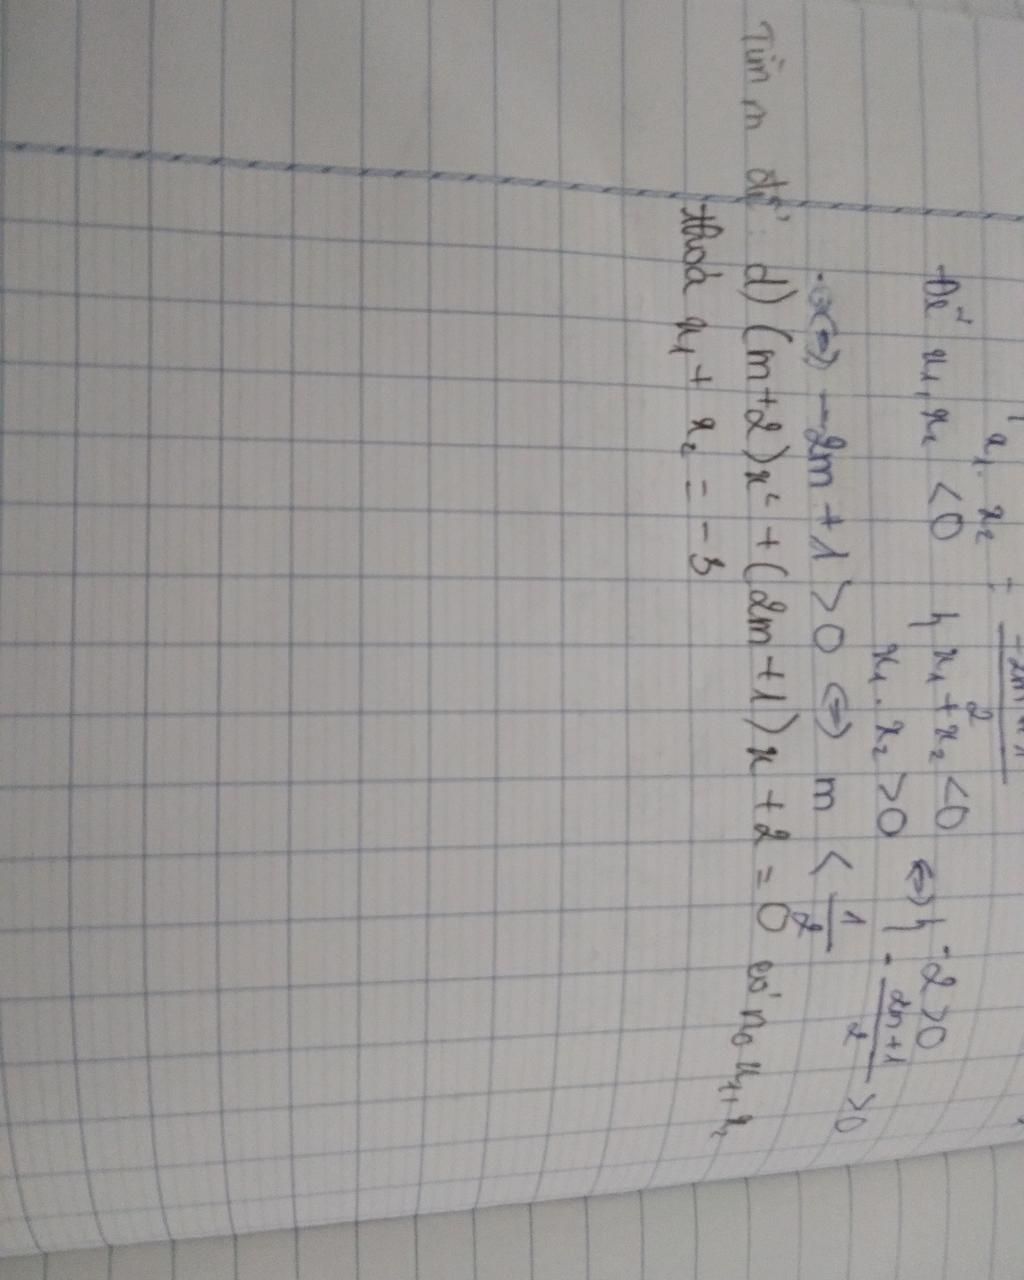 x₁ . x₂ = -2m + 1 / 2
Để x₁, x₂ < 0 { x₁ + x₂ < 0 ⇔ { -2 > 0
x₁ . x₂ > 0 - 2m+1 / 2 > 0
⇔ -2m + 1 > 0 ⇔ m < 1/2
Tìm m để: d) (m+2)x² + (2m+1)x + 2 = 0 có n₀ x₁, x₂
thoả x₁ + x₂ = -3